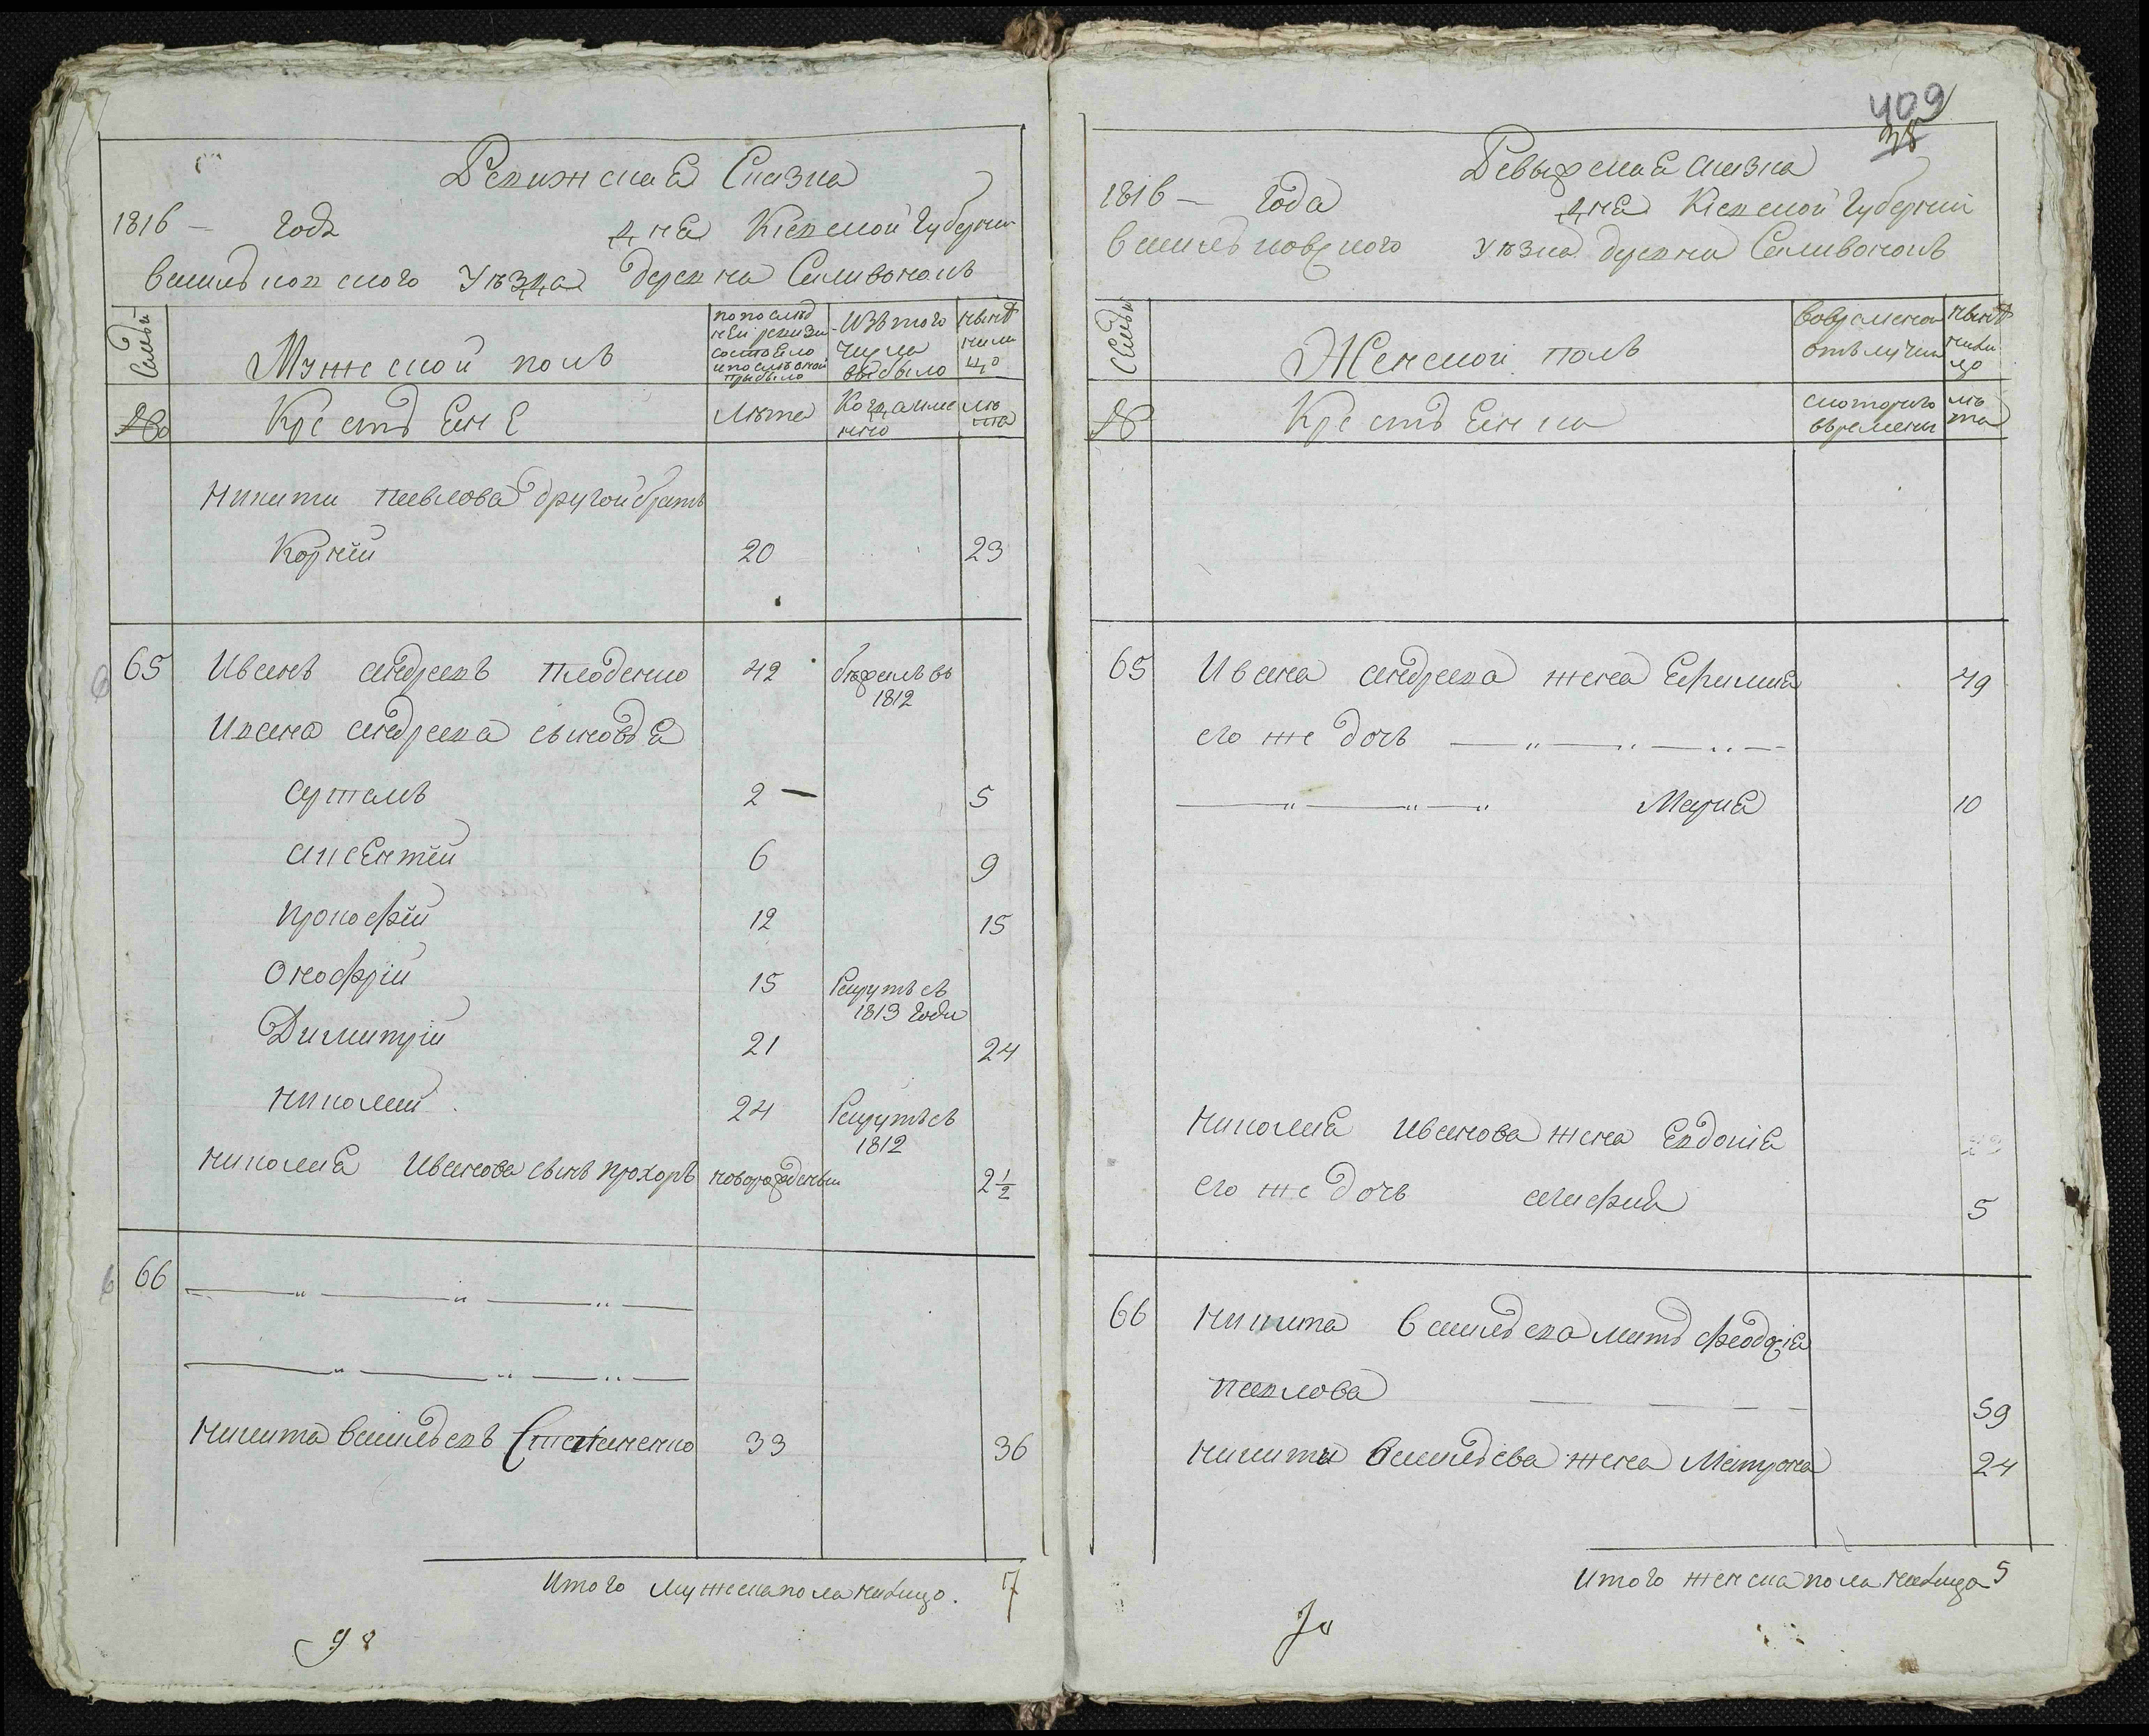 Ревижская Сказка
1816 – годъ дня Кіевской Губерніи
васильковского Уѣзда деревна Саливонокъ
Семьи
Мужеской полъ
по послѣд
ней ревизи
состояло
и послѣ оной
прибыло
Изъ того
числа
выбыло
нынѣ
на ли
цо
№
Крестьяне
Лѣта
Когда име
нно
лѣ
та
Никити павлова другой братъ
Корній
20
23
65
Иванъ андреевъ Плоденко
42
бѣжалъ въ
1812
Ивана андреева сыновья
артемъ
2 –
5
авсентій
6
9
прокофій
12
15
Онофрій
15
Рекрутъ съ
1813 года
Димитрій
21
24
николай
24
Рекрутъ съ
1812
николая Иванова сынъ прохоръ
новорожденый
2 1/2
66
никита васильевъ Степаненко
33
36
Итого мужеска пола налицо. 7
98
409
38
Ревыжская сказка
1816 – года дня Кіевской Губерній
васильковского уѣзда деревни Саливонокъ
Семьи
Женской полъ
вовременой
отълучки
нынѣ
нали
цо
№
Крестьянка
скоторого
времени
лѣ
та
65
Ивана андреева жена Ефимия
49
его же дочь
Мария
10
николая Иванова жена Евдокія
его же дочь агафия
5
66
никита васильева мать феодосія
павлова
59
никиты васильева жена Матрона
24
Итого женска пола налицо 5